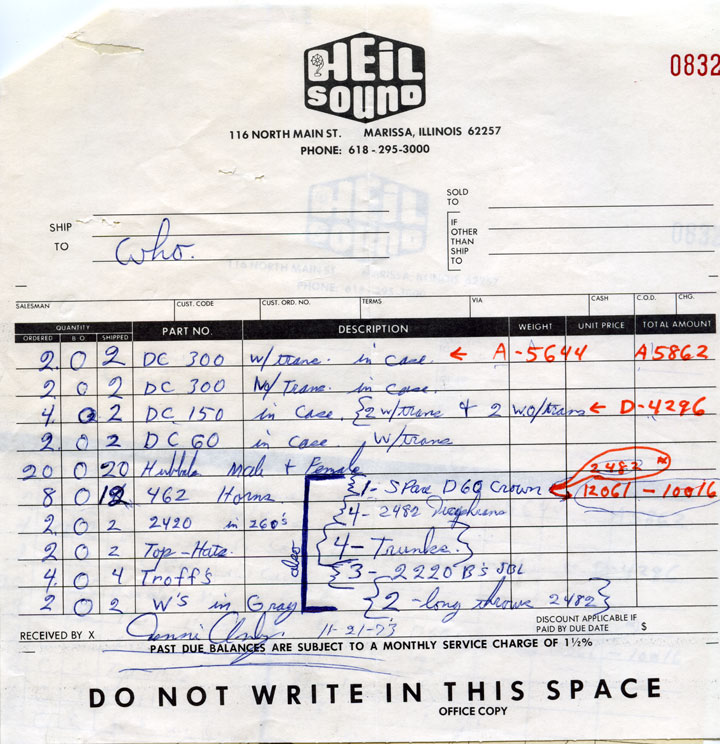 HEIL
SOUND
0832
116 NORTH MAIN ST. MARISSA, ILLINOIS 62257
PHONE: 618-295-3000
SHIP
TO
Who.
SOLD
TO
IF
OTHER
THAN
SHIP
TO
SALESMAN CUST. CODE CUST. ORD. NO. TERMS VIA CASH C.O.D. CHG.
QUANTITY
ORDERED B O SHIPPED PART NO. DESCRIPTION WEIGHT UNIT PRICE TOTAL AMOUNT
2 0 2 DC 300 w/trans. in case. ← A-5644 A5862
2 0 2 DC 300 No/Trans. in case.
4 0 2 DC 150 in case {2 w/trans & 2 wo/trans ← D-4296
2 0 2 DC 60 in case w/trans
20 0 20 Male + Female 2482
8 0 12 462 Horns {1- SPare D60 Crown 12061 - 10016
2 0 2 2420 in 260's {4- 2482
2 0 2 Top-Hats. also {4- Trunks.}
4 0 4 Troff's {3- 2220 B's JBL
2 0 2 W's in Gray {2 -long throws 2482}
RECEIVED BY X 11-21-73 DISCOUNT APPLICABLE IF
PAID BY DUE DATE $
PAST DUE BALANCES ARE SUBJECT TO A MONTHLY SERVICE CHARGE OF 1½%
DO NOT WRITE IN THIS SPACE
OFFICE COPY